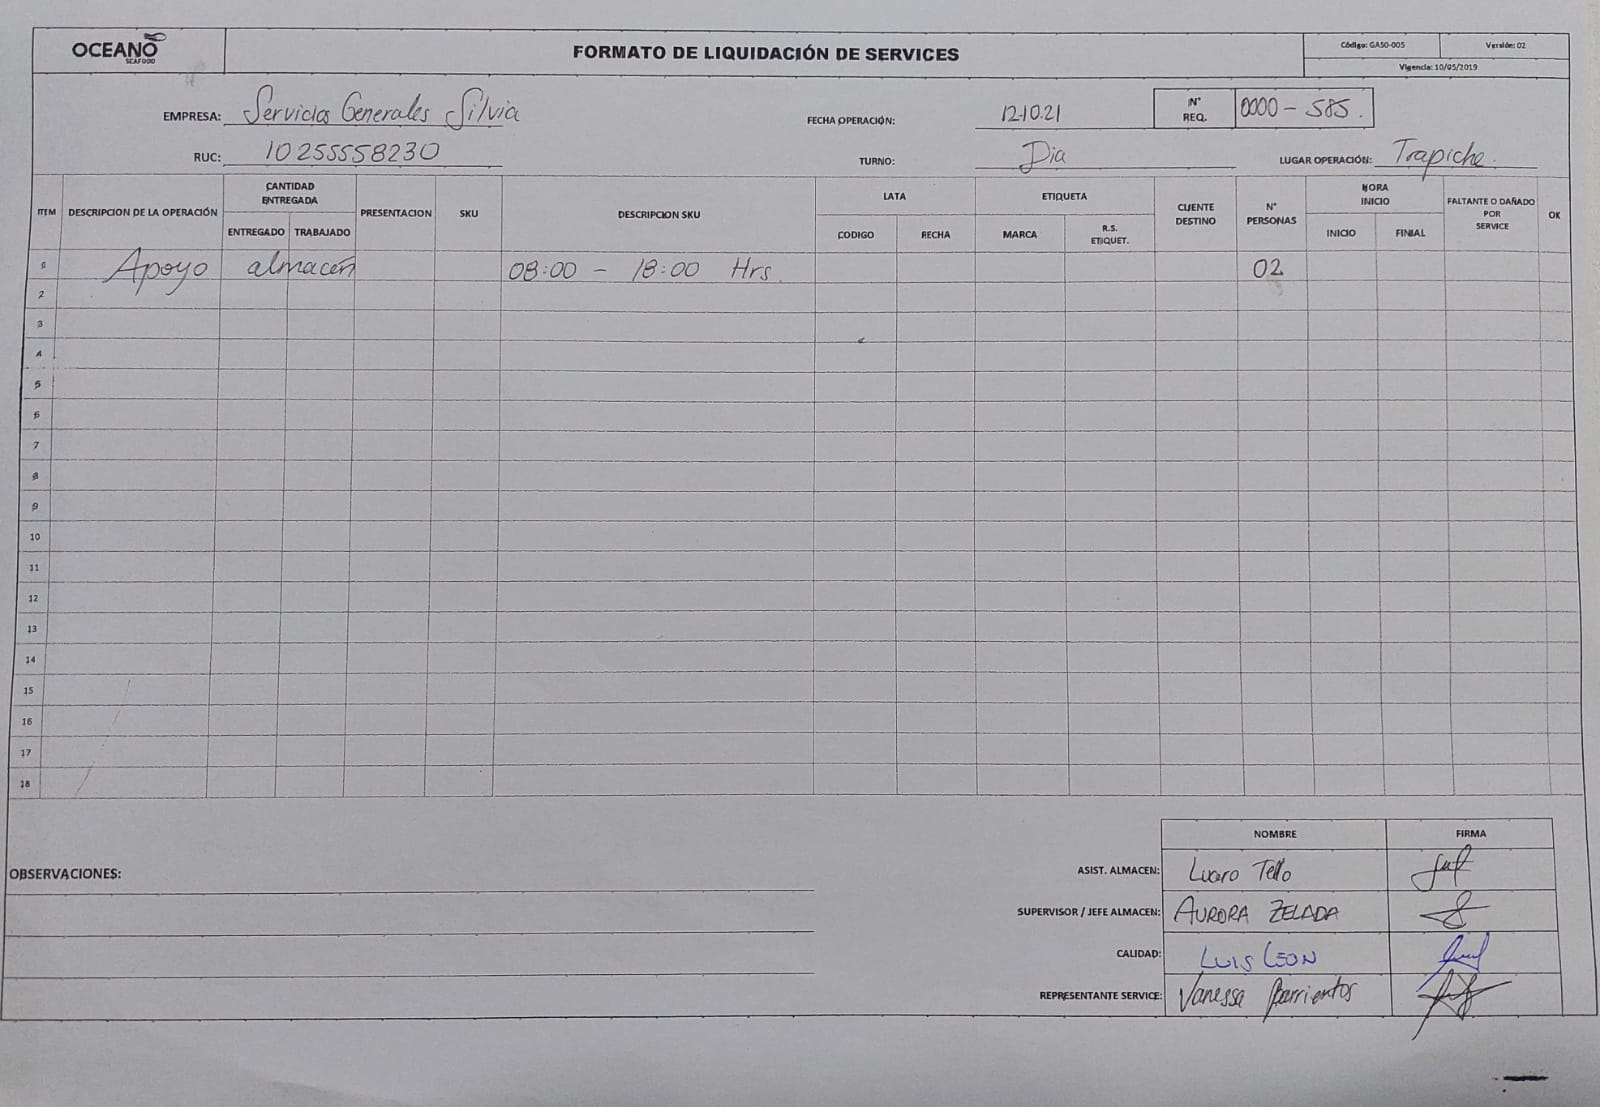 OCEANO
SEAFOOD
FORMATO DE LIQUIDACIÓN DE SERVICES
Código: GA50-005
Versión: 02
Vigencia: 10/05/2019
EMPRESA: Servicios Generales Silvia
FECHA OPERACIÓN: 12.10.21
N° REQ. 0000 - 585.
RUC: 10255558230
TURNO: Dia
LUGAR OPERACIÓN: Trapiche.
ITEM
DESCRIPCION DE LA OPERACIÓN
CANTIDAD ENTREGADA
ENTREGADO
TRABAJADO
PRESENTACION
SKU
DESCRIPCION SKU
LATA
CODIGO
FECHA
ETIQUETA
MARCA
R.S. ETIQUET.
CLIENTE DESTINO
N° PERSONAS
HORA INICIO
INICIO
FINIAL
FALTANTE O DAÑADO POR SERVICE
OK
Apoyo almacén 08:00 - 18:00 Hrs. 02
2
3
4
5
6
7
8
9
10
11
12
13
14
15
16
17
18
OBSERVACIONES:
NOMBRE FIRMA
ASIST. ALMACEN: Tello
SUPERVISOR / JEFE ALMACEN: AURORA ZELADA
CALIDAD: LUIS LEON
REPRESENTANTE SERVICE: Vanessa Barrientos